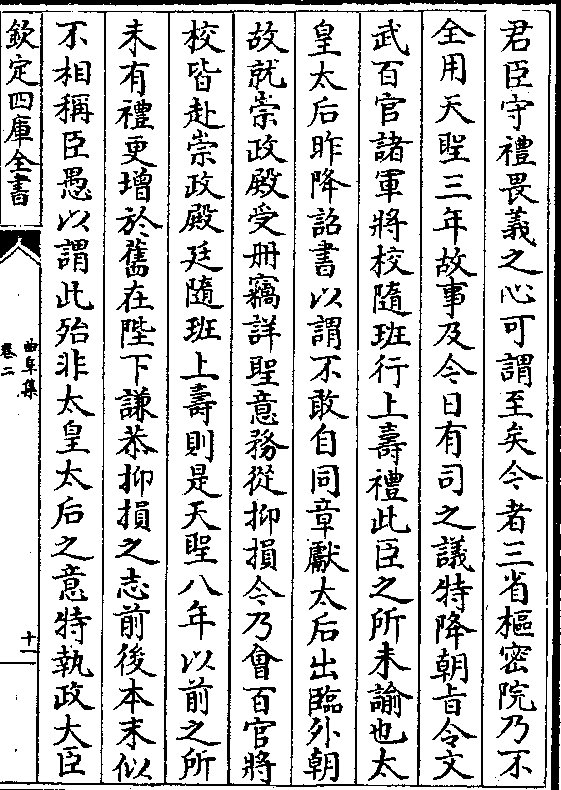 君臣守禮畏義之心可謂至矣今者三省樞密院乃不
全用天聖三年故事及今日有司之議特降朝旨令文
武百官諸軍將校隨班行上壽禮此臣之所未諭也太
皇太后昨降詔書以謂不敢自同章獻太后出臨外朝
故就崇政殿受册竊詳聖意務從抑損今乃會百官將
校皆赴崇政殿廷隨班上壽則是天聖八年以前之所
未有禮更增於舊在陛下謙恭抑損之志前後本末似
不相稱臣愚以謂此殆非太皇太后之意特執政大臣
欽定四庫全書
曲阜集
卷二
十一